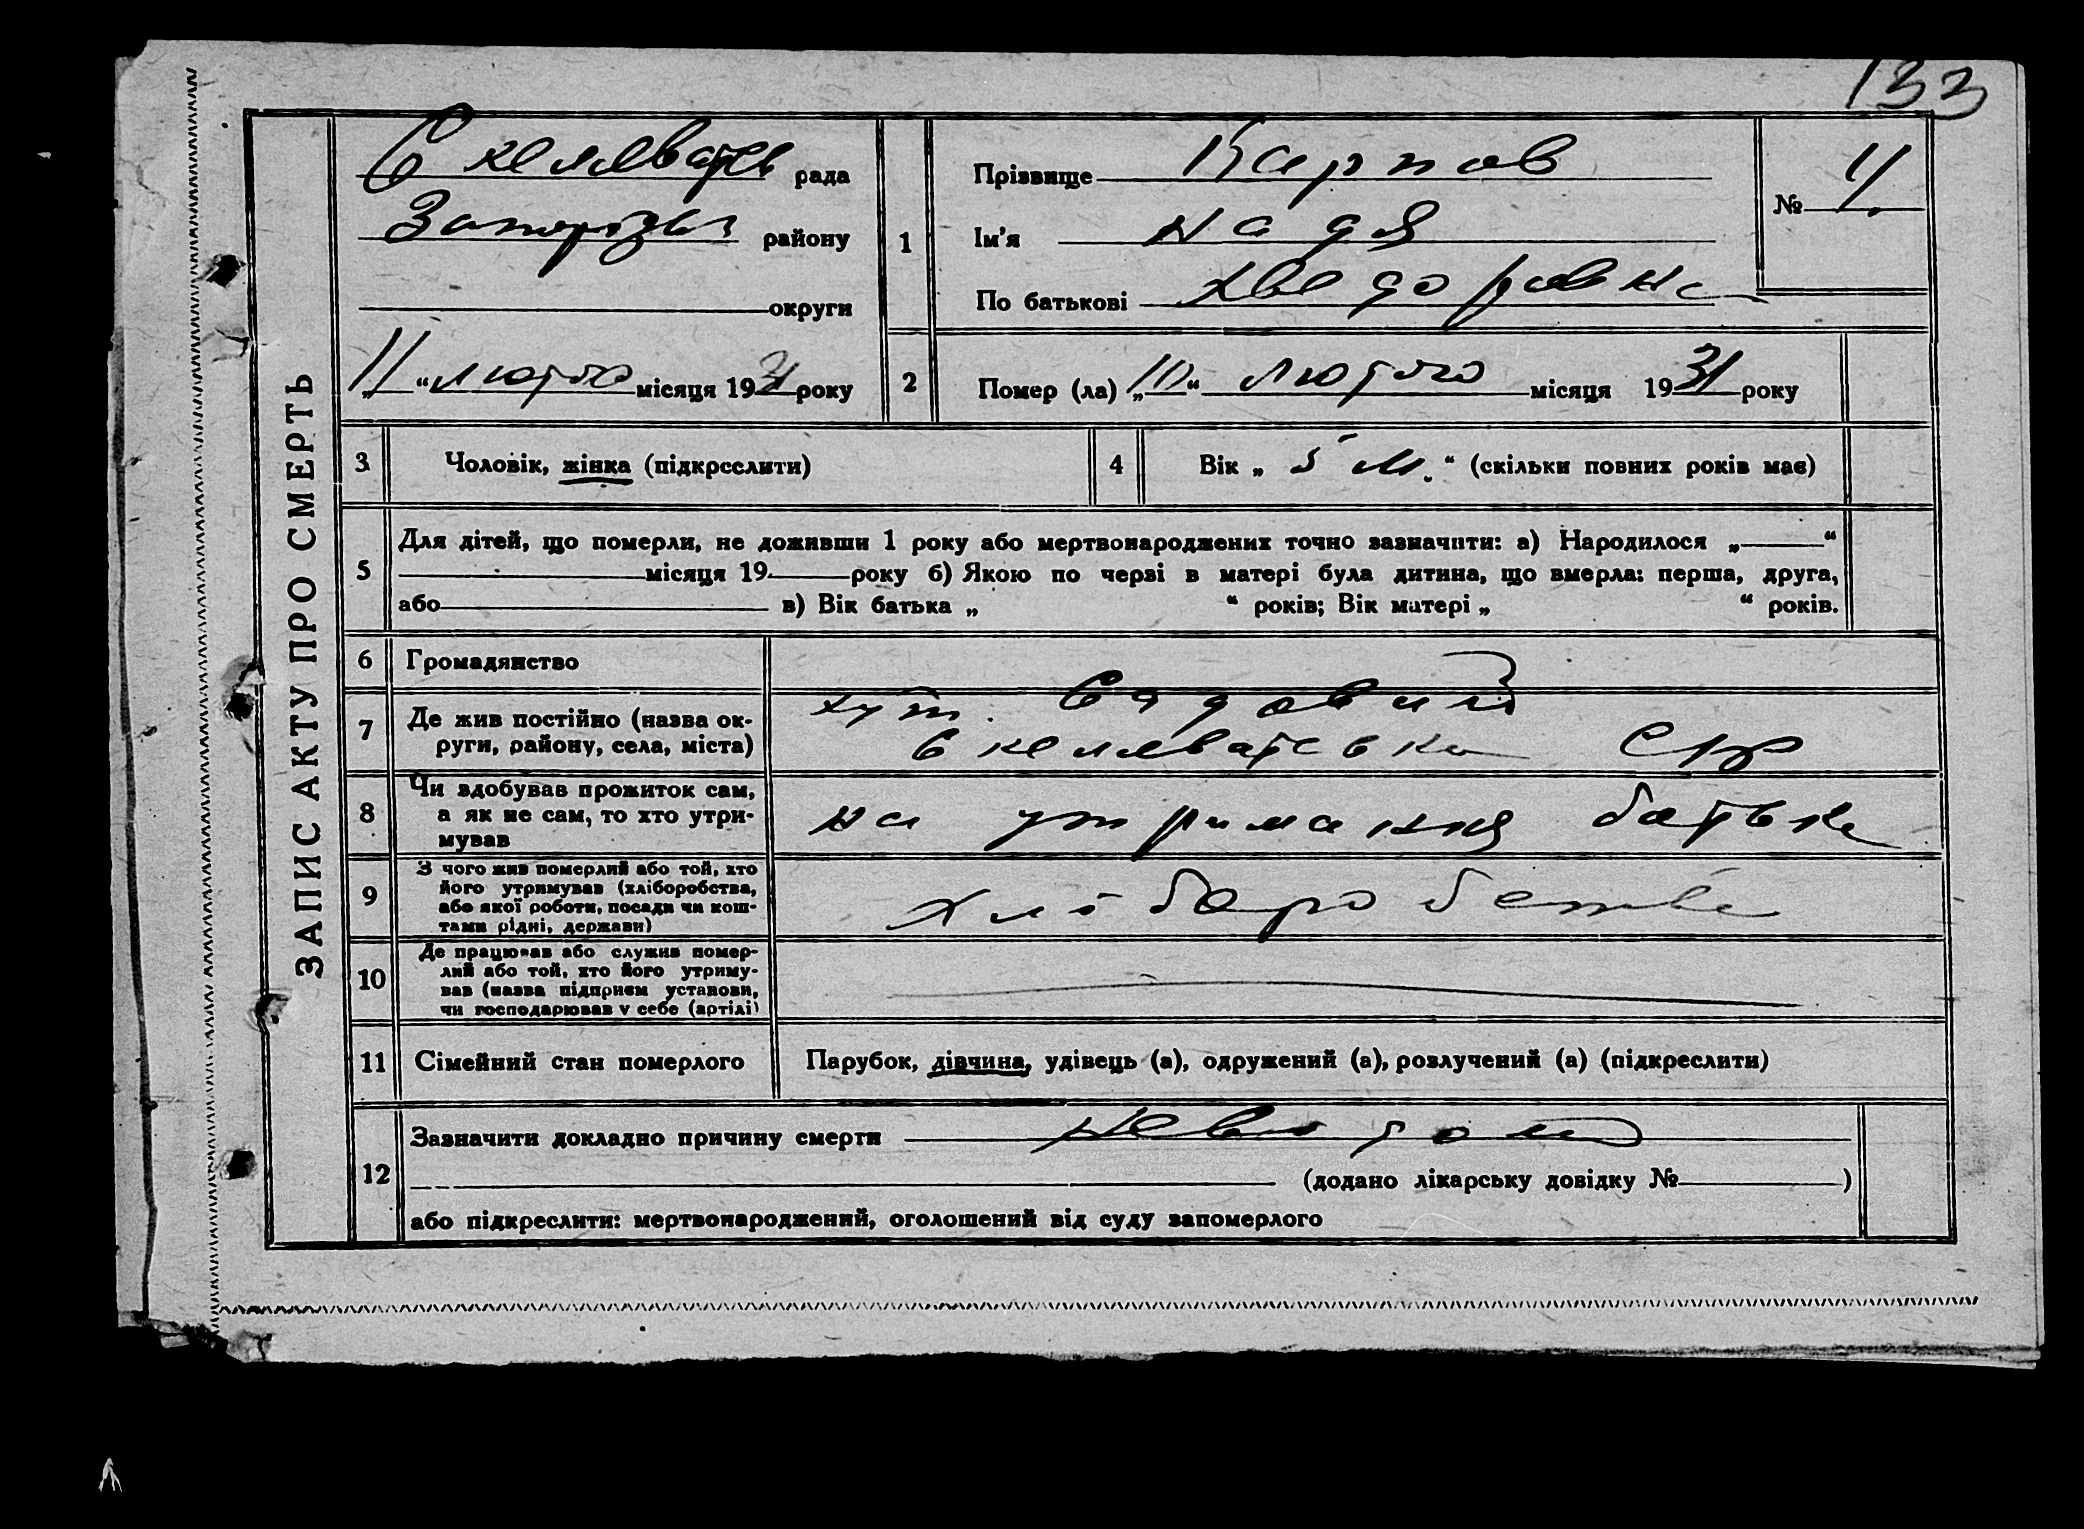 133
ЗАПИС АКТУ ПРО СМЕРТЬ
Скелеватсь рада
Запорізьк району
округи
„11“ лютого місяця 1931 року
1
Прізвище Карпов
Ім'я Надя
По батькові Хведоровна
№ 11.
2
Помер (ла) „10“ лютого місяця 1931 року
3 Чоловік, жінка (підкреслити)
4 Вік „5 м.“ (скільки повних років має)
5
Для дітей, що померли, не доживши 1 року або мертвонароджених точно зазначити: а) Народилося „ “
місяця 19 року б) Якою по черзі в матері була дитина, що вмерла: перша, друга,
або в) Вік батька „ “ років; Вік матері „ “ років.
6 Громадянство
7 Де жив постійно (назва ок-
руги, району, села, міста)
хут. Садовий
Скелеватська С/р
8 Чи здобував прожиток сам,
а як не сам, то хто утри-
мував
на утримання батька
9 З чого жив померлий або той, хто
його утримував (хліборобства,
або якої роботи, посади чи кош-
тами рідні, держави)
хліборобства
10 Де працював або служив помер-
лий або той, хто його утриму-
вав (назва підприєм установи,
чи господарював у себе (артілі)
11 Сімейний стан померлого
Парубок, дівчина, удівець (а), одружений (а), розлучений (а) (підкреслити)
12 Зазначити докладно причину смерти
(додано лікарську довідку № )
або підкреслити: мертвонароджений, оголошений від суду запомерлого